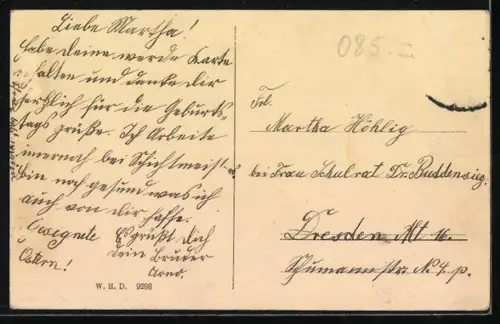 Liebe Martha!
habe deine werde Karte
halten und danke dir
herblich für die Geburts-
tags grüße. Ich Arbeite
immernoch bei Schichtmeist
bin noch gesund was ich
auch von dir hoffe.
Gesegnete Es grüßt dich
Ostern! dein Bruder
Arno.
W. H. D. 9298
085.-
Frl.
Martha Höhlig
bei Frau Schulrat Dr. Buddensieg.
Dresden Alt 16.
Schumannstr. N. 4. p.